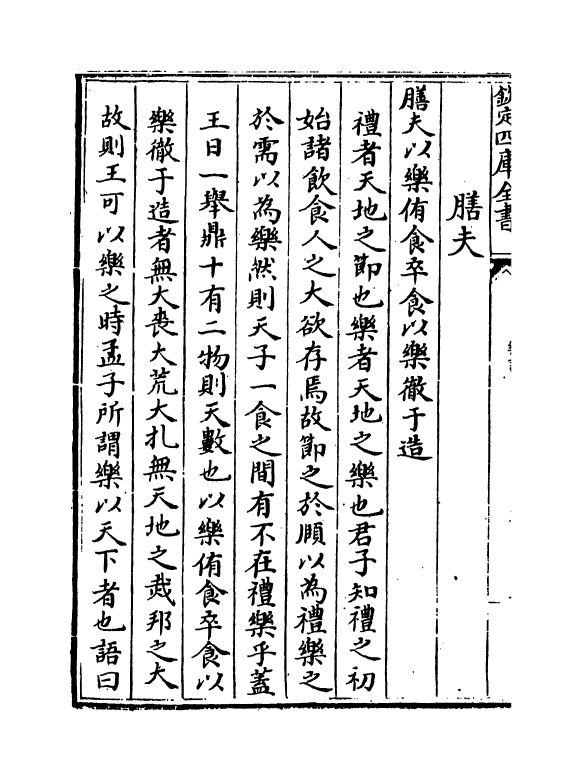 欽定四庫全書
膳夫
膳夫以樂侑食卒食以樂徹于造
禮者天地之節也樂者天地之樂也君子知禮之初
始諸飲食人之大欲存焉故節之於頤以為禮樂之
於需以為樂然則天子一食之間有不在禮樂乎蓋
王日一舉鼎十有二物則天數也以樂侑食卒食以
樂徹于造者無大喪大荒大札無天地之烖邦之大
故則王可以樂之時孟子所謂樂以天下者也語曰